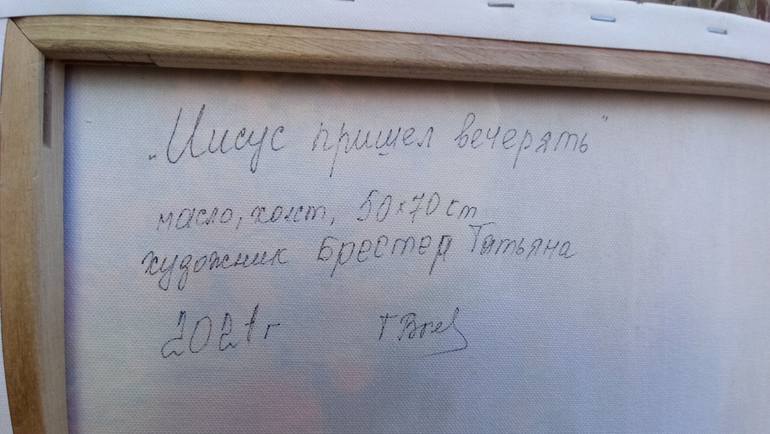 „Иисус пришел вечерять"
масло, холст, 50×70 cm
художник Брестер Татьяна
2021 г T Bres